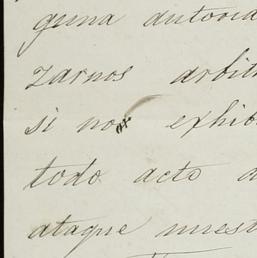 guna autorid
zarnos arbit
si nos exhib
todo acto a
ataque nuest